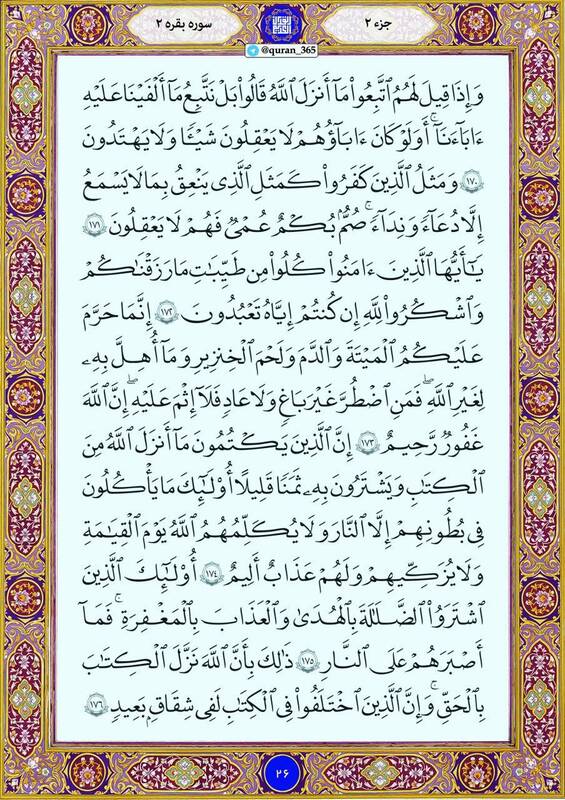 سوره بقره ۲
جزء ۲
@quran_365
وَإِذَا قِيلَ لَهُمُ ٱتَّبِعُوا۟ مَآ أَنزَلَ ٱللَّهُ قَالُوا۟ بَلْ نَتَّبِعُ مَآ أَلْفَيْنَا عَلَيْهِ
ءَابَآءَنَآ ۗ أَوَلَوْ كَانَ ءَابَآؤُهُمْ لَا يَعْقِلُونَ شَيْـًٔا وَلَا يَهْتَدُونَ
۱۷۰ وَمَثَلُ ٱلَّذِينَ كَفَرُوا۟ كَمَثَلِ ٱلَّذِى يَنْعِقُ بِمَا لَا يَسْمَعُ
إِلَّا دُعَآءً وَنِدَآءً ۚ صُمٌّۢ بُكْمٌ عُمْىٌ فَهُمْ لَا يَعْقِلُونَ ۱۷۱
يَـٰٓأَيُّهَا ٱلَّذِينَ ءَامَنُوا۟ كُلُوا۟ مِن طَيِّبَـٰتِ مَا رَزَقْنَـٰكُمْ
وَٱشْكُرُوا۟ لِلَّهِ إِن كُنتُمْ إِيَّاهُ تَعْبُدُونَ ۱۷۲ إِنَّمَا حَرَّمَ
عَلَيْكُمُ ٱلْمَيْتَةَ وَٱلدَّمَ وَلَحْمَ ٱلْخِنزِيرِ وَمَآ أُهِلَّ بِهِۦ
لِغَيْرِ ٱللَّهِ ۖ فَمَنِ ٱضْطُرَّ غَيْرَ بَاغٍ وَلَا عَادٍ فَلَآ إِثْمَ عَلَيْهِ ۚ إِنَّ ٱللَّهَ
غَفُورٌ رَّحِيمٌ ۱۷۳ إِنَّ ٱلَّذِينَ يَكْتُمُونَ مَآ أَنزَلَ ٱللَّهُ مِنَ
ٱلْكِتَـٰبِ وَيَشْتَرُونَ بِهِۦ ثَمَنًا قَلِيلًا أُو۟لَـٰٓئِكَ مَا يَأْكُلُونَ
فِى بُطُونِهِمْ إِلَّا ٱلنَّارَ وَلَا يُكَلِّمُهُمُ ٱللَّهُ يَوْمَ ٱلْقِيَـٰمَةِ
وَلَا يُزَكِّيهِمْ وَلَهُمْ عَذَابٌ أَلِيمٌ ۱۷۴ أُو۟لَـٰٓئِكَ ٱلَّذِينَ
ٱشْتَرَوُا۟ ٱلضَّلَـٰلَةَ بِٱلْهُدَىٰ وَٱلْعَذَابَ بِٱلْمَغْفِرَةِ ۚ فَمَآ
أَصْبَرَهُمْ عَلَى ٱلنَّارِ ۱۷۵ ذَٰلِكَ بِأَنَّ ٱللَّهَ نَزَّلَ ٱلْكِتَـٰبَ
بِٱلْحَقِّ ۗ وَإِنَّ ٱلَّذِينَ ٱخْتَلَفُوا۟ فِى ٱلْكِتَـٰبِ لَفِى شِقَاقٍۭ بَعِيدٍ ۱۷۶
۲۶